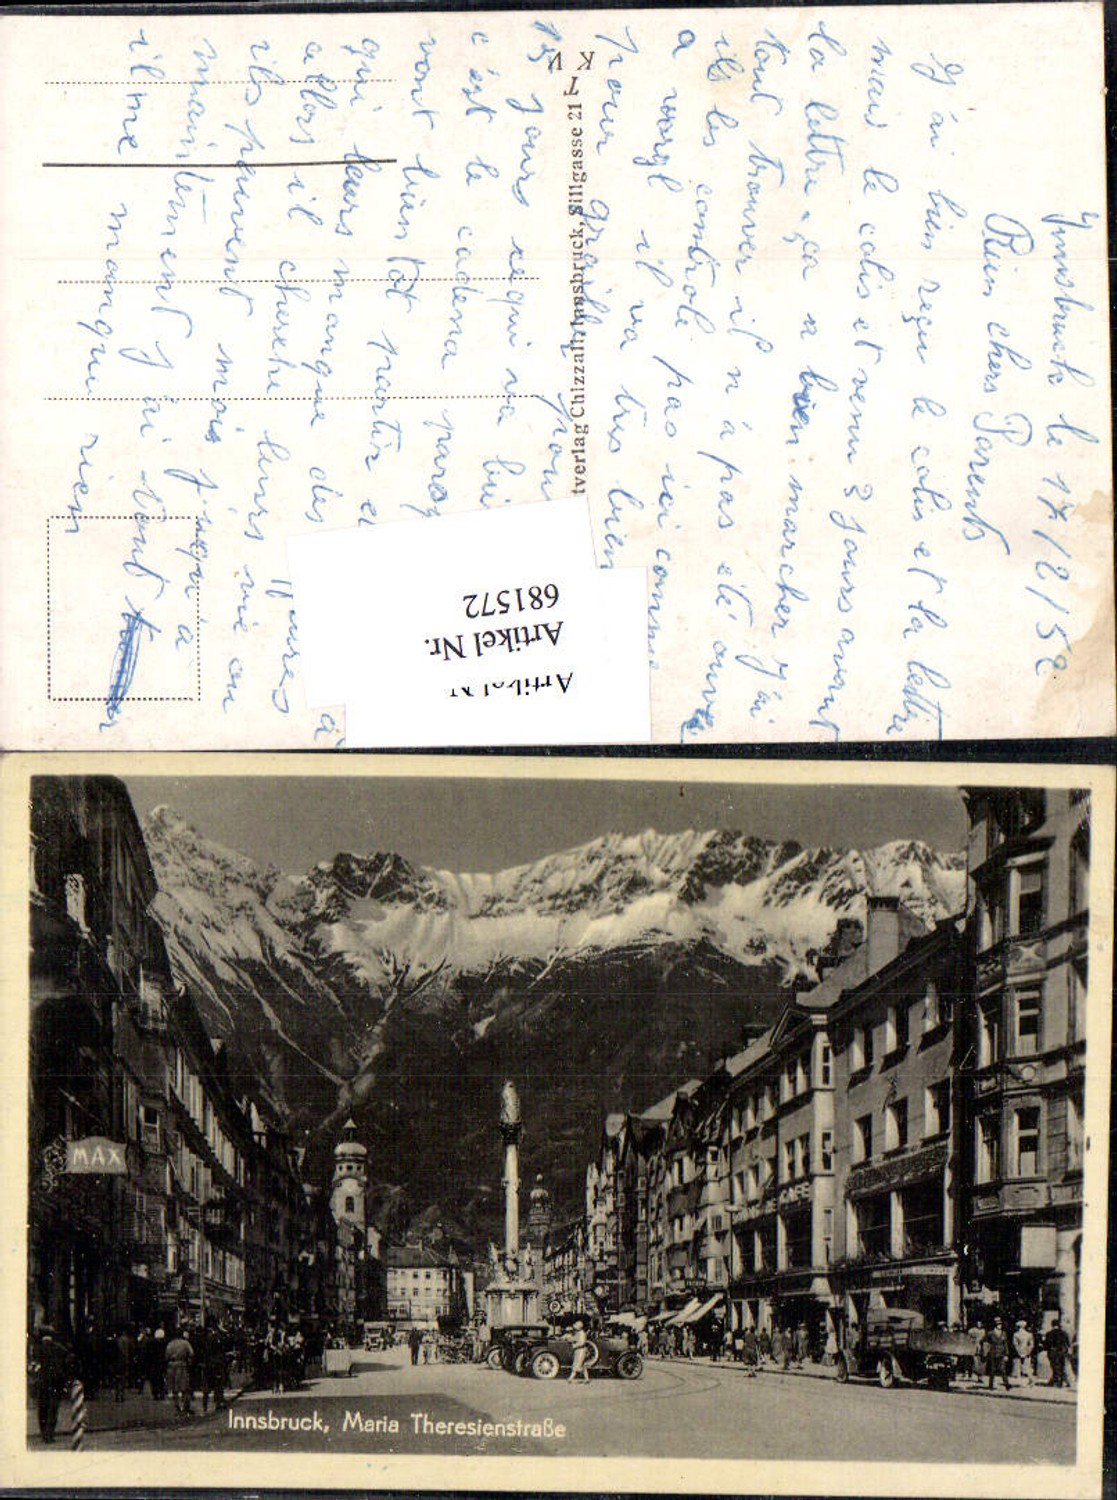 Innsbruck le 17/2/52
Bien chers Parents
J'ai bien reçu le colis et la lettre
mais le colis et venu 3 jours avant
la lettre ça a bien marcher J'ai
tout trouver il n'a pas été ouvre
ils les controle pas ici comme
a worgl il va tres bien
pour
15 jours cequi va bien
c'est le cadena parsq
vont bientot partir
qui leurs manque des
allors il cherche leurs
ils peuvent mois vie on
maintenent jusqu'a
il me J'ai tout
manque rien
Innsbruck, Sillgasse 21
Artikel Nr.
681572
Artikel Nr.
MAX
CAFE
Innsbruck, Maria Theresienstraße